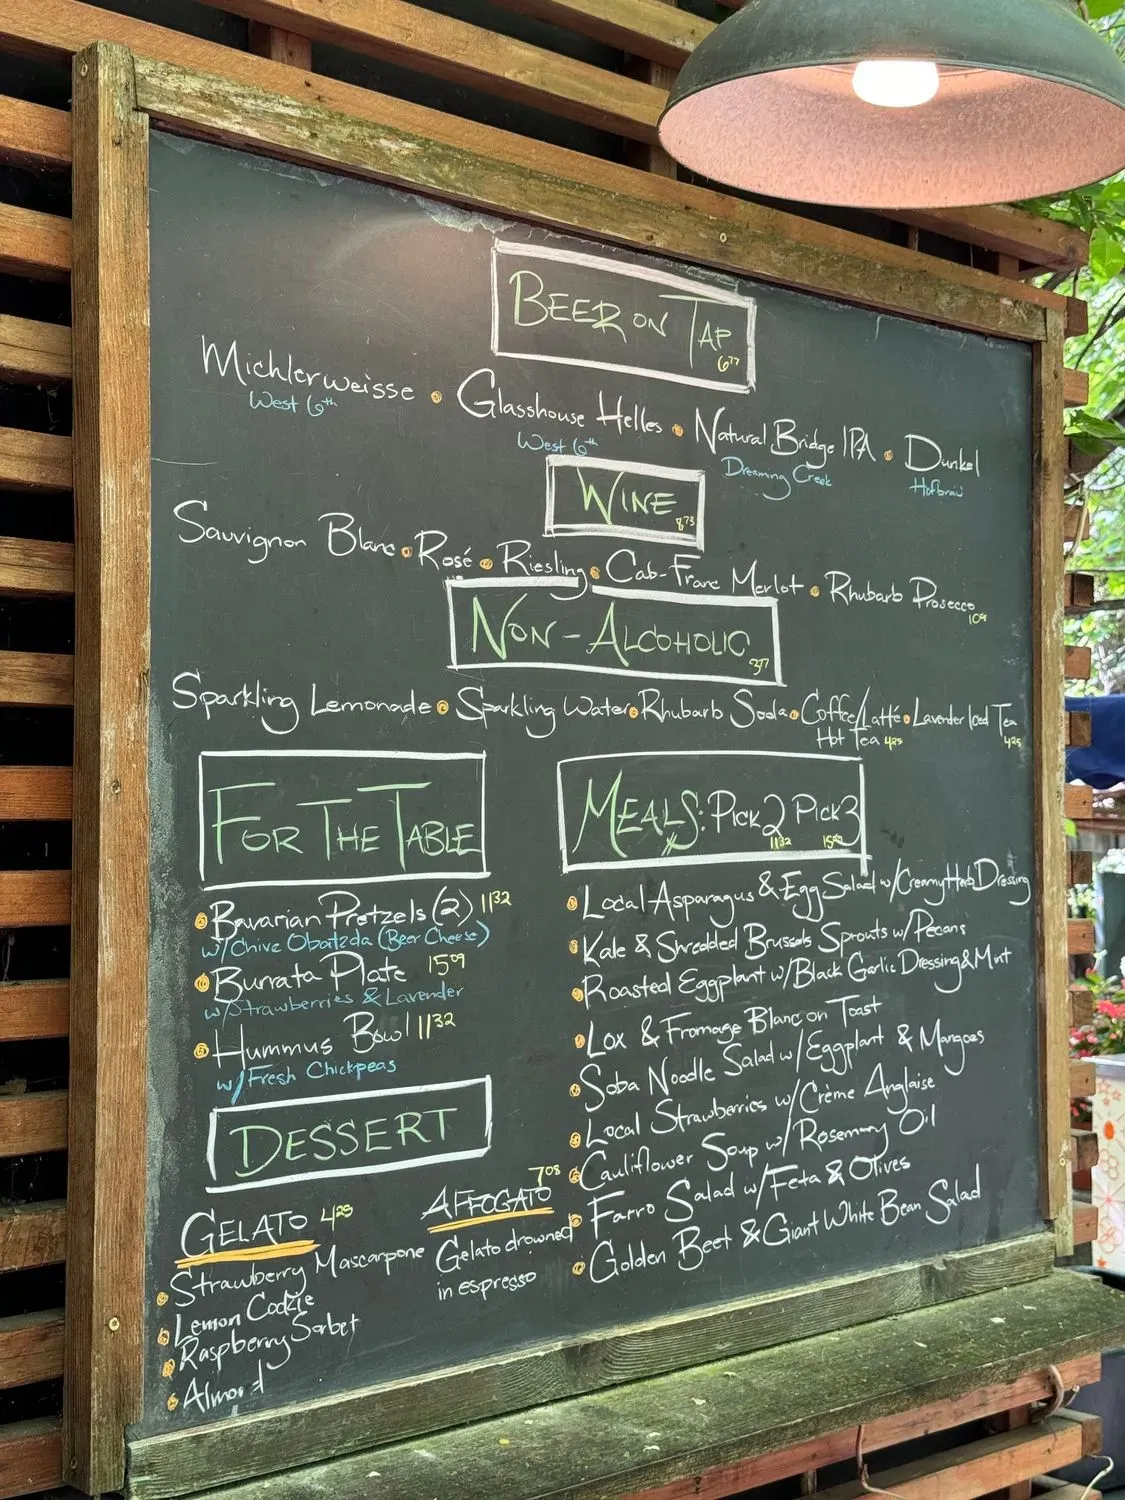 BEER ON TAP 6.77
Michlerweisse • Glasshouse Helles • Natural Bridge IPA • Dunkel
West 6th West 6th Dreaming Creek Hofbräu
WINE 8.73
Sauvignon Blanc • Rosé • Riesling • Cab-Franc Merlot • Rhubarb Prosecco
NON-ALCOHOLIC 3.77
Sparkling Lemonade • Sparkling Water • Rhubarb Soda • Coffee/Latté • Lavender Iced Tea
Hot Tea 4.25 4.25
FOR THE TABLE
• Bavarian Pretzels (2) 11.32
w/Chive Obatzda (Beer Cheese)
• Burrata Plate 15.09
w/Strawberries & Lavender
• Hummus Bowl 11.32
w/Fresh Chickpeas
DESSERT
GELATO 4.25
• Strawberry Mascarpone
• Lemon Cookie
• Raspberry Sorbet
• Almond
AFFOGATO 7.08
Gelato drowned
in espresso
MEALS: PICK 2 PICK 3
11.32
• Local Asparagus & Egg Salad w/Creamy Herb Dressing
• Kale & Shredded Brussels Sprouts w/Pecans
• Roasted Eggplant w/Black Garlic Dressing & Mint
• Lox & Fromage Blanc on Toast
• Soba Noodle Salad w/Eggplant & Mangoes
• Local Strawberries w/Crème Anglaise
• Cauliflower Soup w/Rosemary Oil
• Farro Salad w/Feta & Olives
• Golden Beet & Giant White Bean Salad